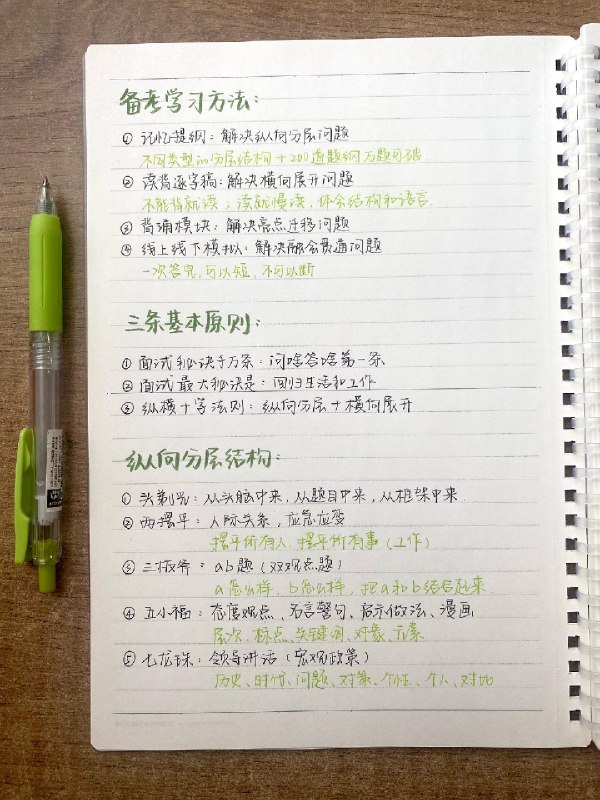 备考学习方法:
① 记忆提纲: 解决纵向分层问题
不同类型的分层结构+200道题纲万题可破
② 读背逐字稿: 解决横向展开问题
不能背就读, 读就慢读, 体会结构和语言
③ 背诵模块: 解决亮点迁移问题
④ 线上线下模拟: 解决融会贯通问题
一次答完, 可以短, 不可以断
三条基本原则:
① 面试秘诀千万条: 问啥答啥第一条
② 面试最大秘诀是: 回归生活和工作
③ 纵横十字法则: 纵向分层+横向展开
纵向分层结构:
① 头剃光: 从头脑中来, 从题目中来, 从框架中来
② 两摆平: 人际关系, 应急应变
摆平所有人, 摆平所有事(工作)
③ 三板斧: ab题(双观点题)
a怎么样, b怎么样, 把a和b结合起来
④ 五小福: 态度观点、名言警句、启示做法、漫画
层次、标点、关键词、对象、元素
⑤ 七龙珠: 领导讲话(宏观政策)
历史、时代、问题、对策、个性、个人、对比